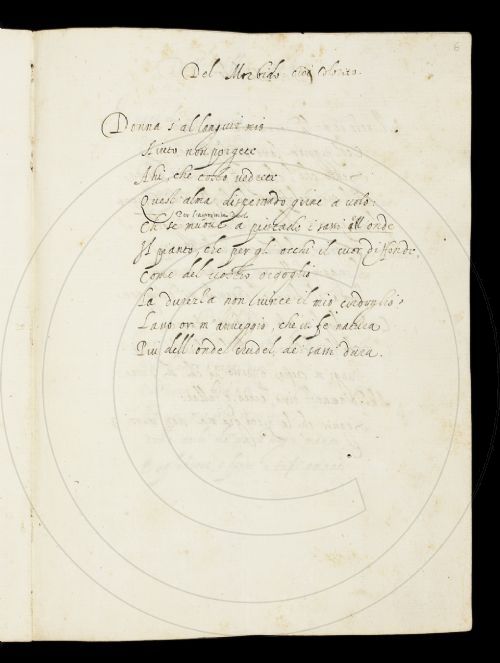 6
Del Morbido cioè Colorito.
Donna s'al languir mio
Aiuto non porgete
Ahi, che tosto vedrete
Quest'alma disperando girne a volo:
Ch se muove a pietade i sassi e l'onde
Il pianto, che per gl'occhi il cuor diffonde,
Come del vostro orgoglio
La durezza non vince il mio cordoglio?
Lasso or m'avveggio, che vi fe natura
Più dell'onde crudel, de sassi dura.